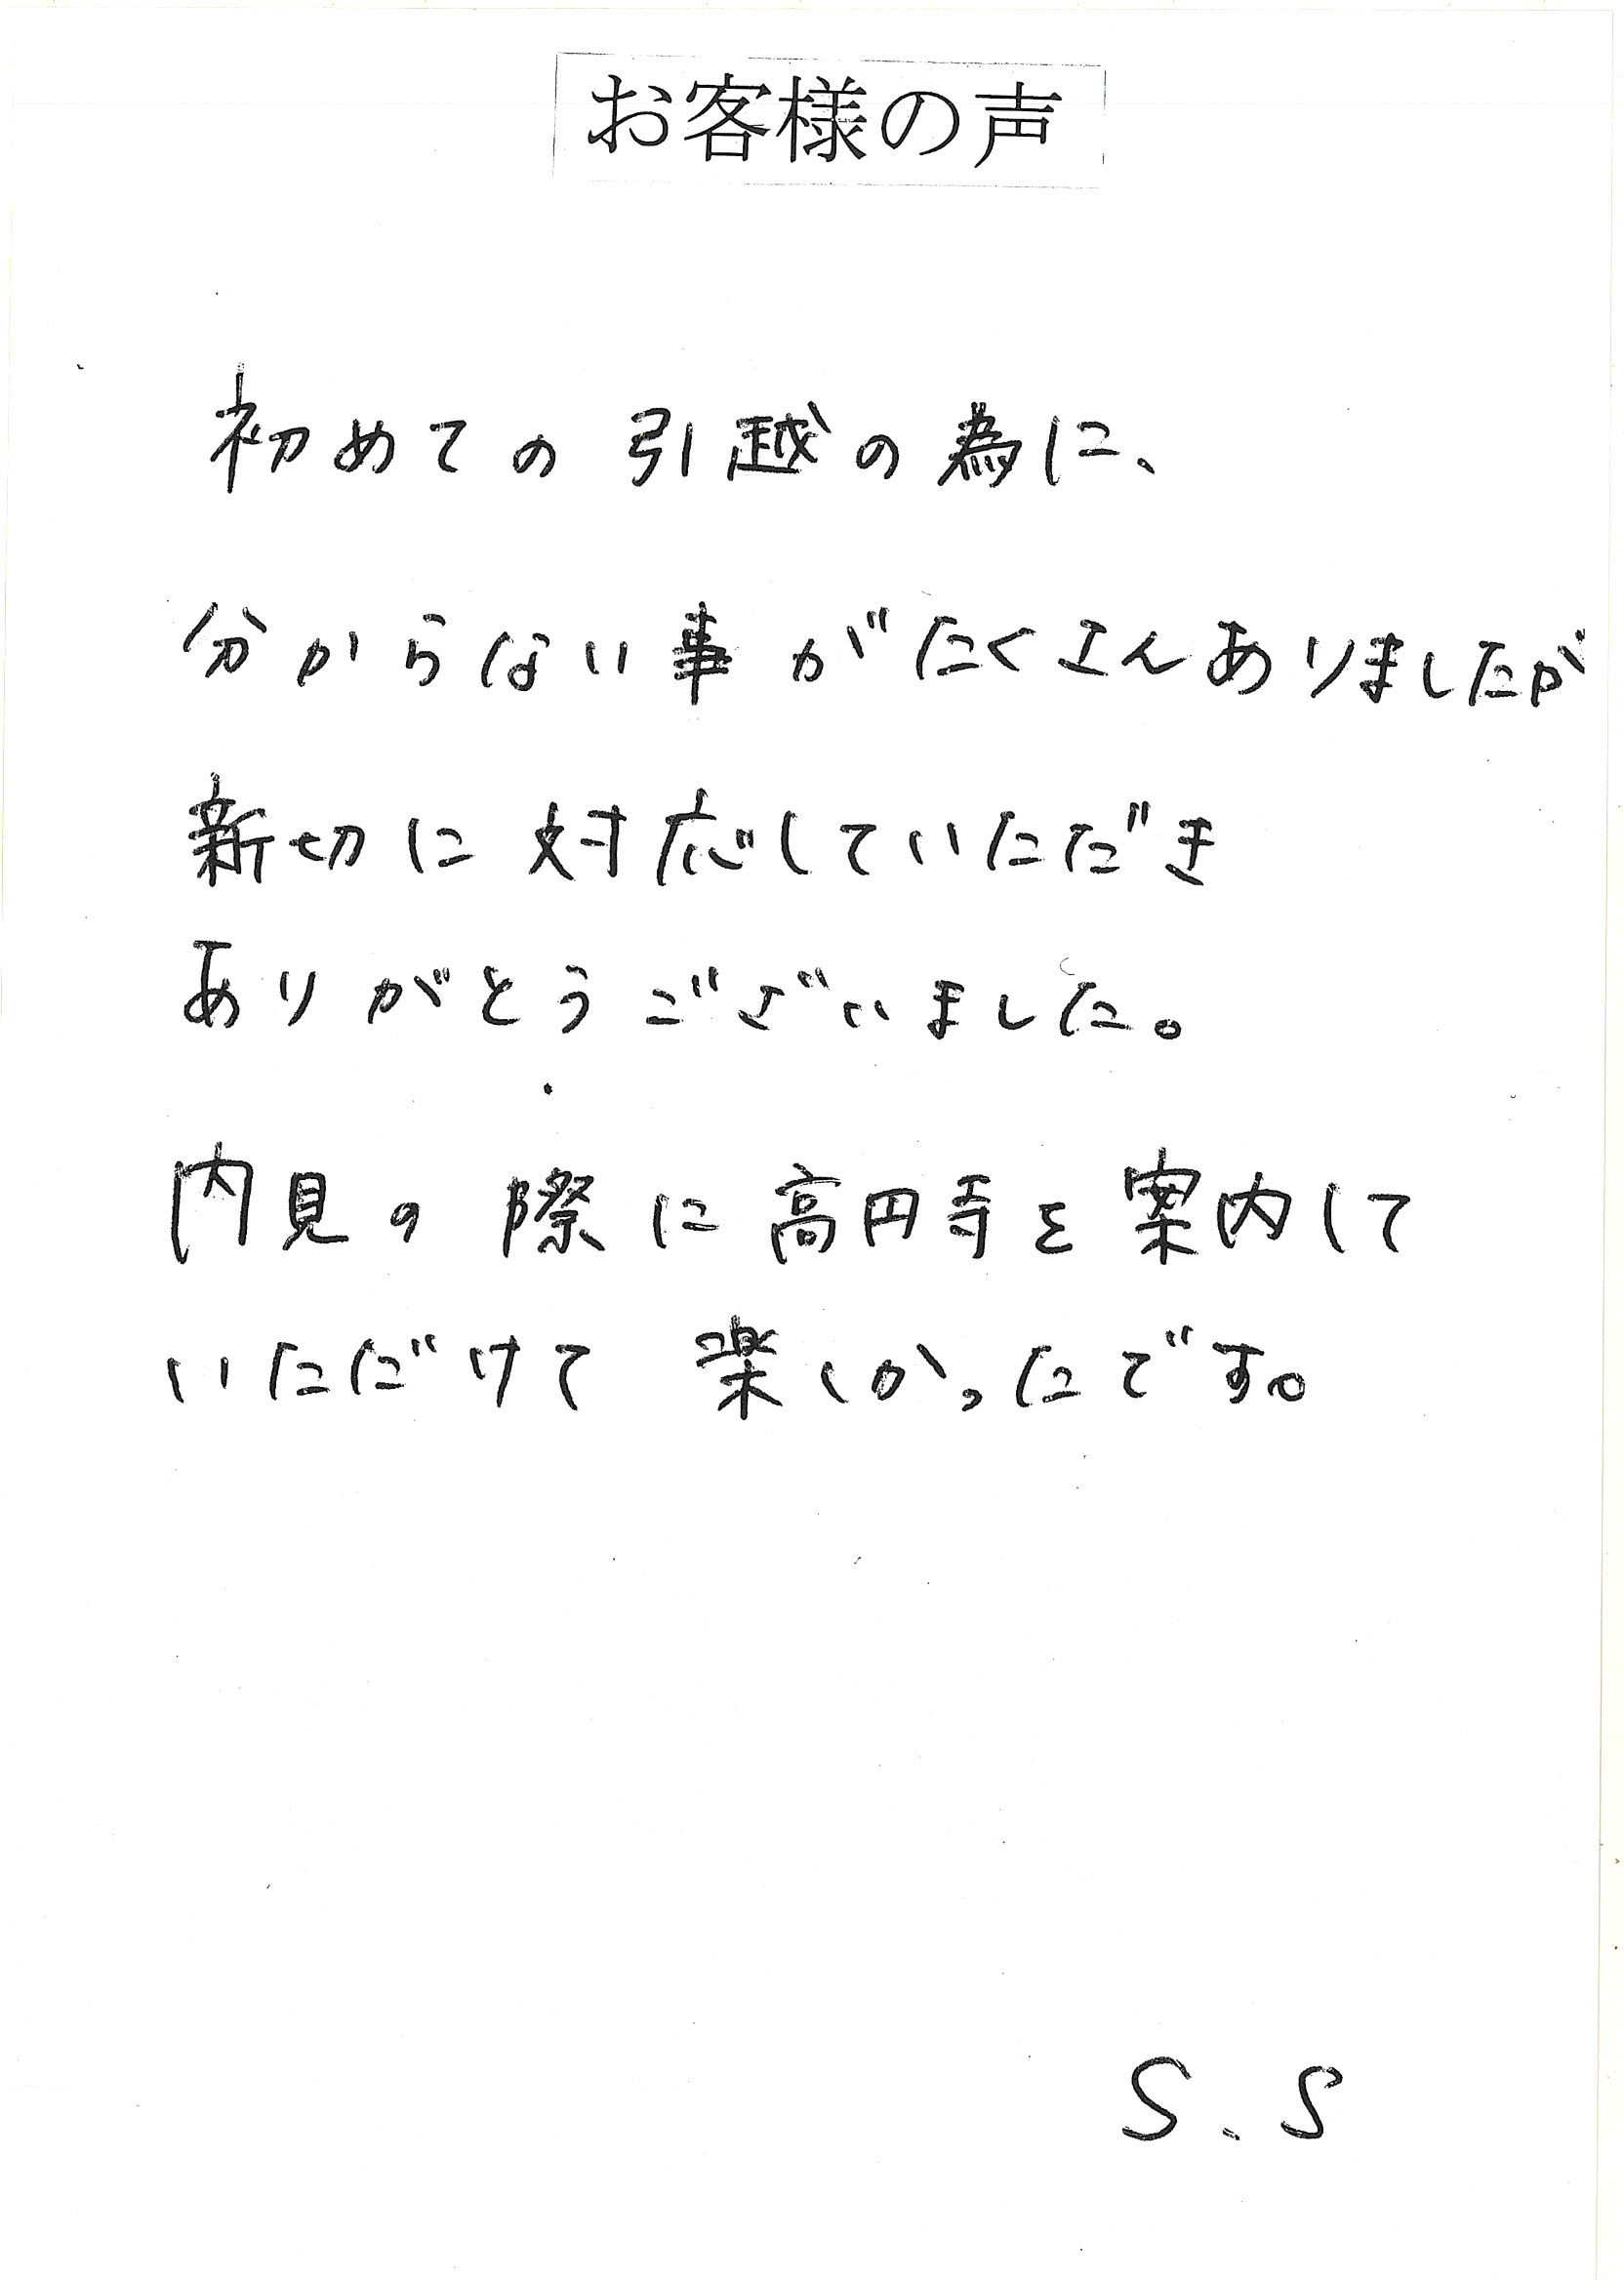 お客様の声
初めての引越の為に、
分からない事がたくさんありましたが
新切に対応していただき
ありがとうございました。
内見の際に高円寺を案内して
いただけて楽しかったです。
S.S